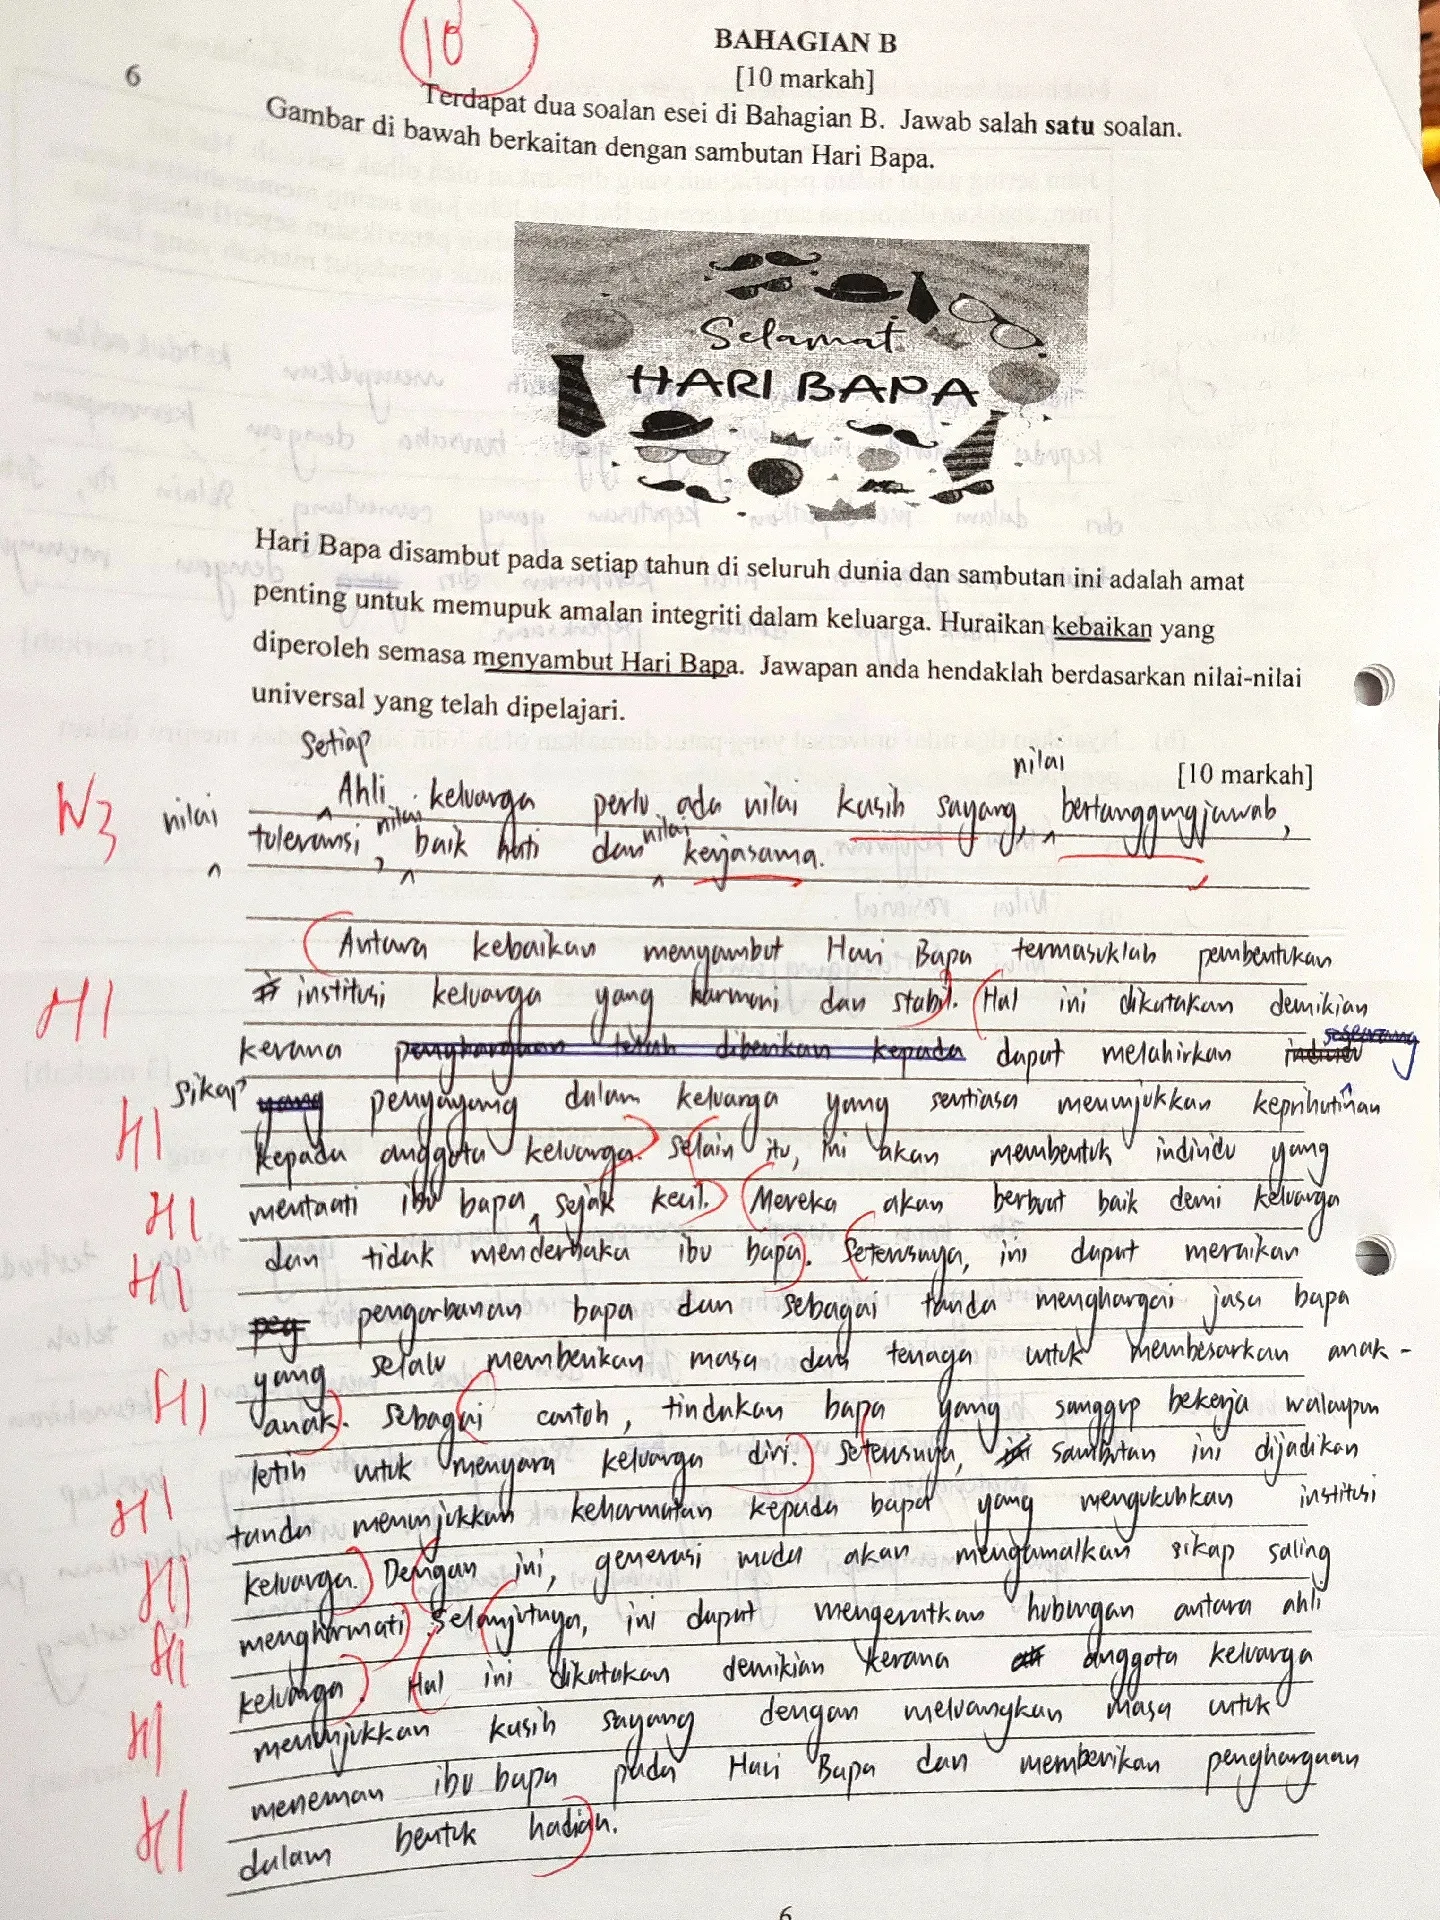 10
BAHAGIAN B
6
[10 markah]
Terdapat dua soalan esei di Bahagian B. Jawab salah satu soalan.
Gambar di bawah berkaitan dengan sambutan Hari Bapa.
Selamat
HARI BAPA
Hari Bapa disambut pada setiap tahun di seluruh dunia dan sambutan ini adalah amat
penting untuk memupuk amalan integriti dalam keluarga. Huraikan kebaikan yang
diperoleh semasa menyambut Hari Bapa. Jawapan anda hendaklah berdasarkan nilai-nilai
universal yang telah dipelajari.
[10 markah]
N3
Setiap Ahli keluarga perlu ada nilai kasih sayang, nilai bertanggungjawab,
nilai toleransi, nilai baik hati dan nilai kerjasama.
Antara kebaikan menyambut Hari Bapa termasuklah pembentukan
H1
institusi keluarga yang harmoni dan stabil. Hal ini dikatakan demikian
kerana penghargaan telah diberikan kepada dapat melahirkan individu seseorang
H1
sikap yang penyayang dalam keluarga yang sentiasa menunjukkan keprihatinan
kepada anggota keluarga. Selain itu, ini akan membentuk individu yang
H1
mentaati ibu bapa sejak kecil. Mereka akan berbuat baik demi keluarga
H1
dan tidak menderhaka ibu bapa. Seterusnya, ini dapat meraikan
peg pengorbanan bapa dan sebagai tanda menghargai jasa bapa
yang selalu memberikan masa dan tenaga untuk membesarkan anak-
H1
anak. Sebagai contoh, tindakan bapa yang sanggup bekerja walaupun
letih untuk menyara keluarga diri. Seterusnya, ini sambutan ini dijadikan
H1
tanda menunjukkan kehormatan kepada bapa yang mengukuhkan institusi
H1
keluarga. Dengan ini, generasi muda akan mengamalkan sikap saling
H1
menghormati. Selanjutnya, ini dapat mengeratkan hubungan antara ahli
keluarga. Hal ini dikatakan demikian kerana anggota keluarga
H1
menunjukkan kasih sayang dengan meluangkan masa untuk
meneman ibu bapa pada Hari Bapa dan memberikan penghargaan
H1
dalam bentuk hadiah.
6